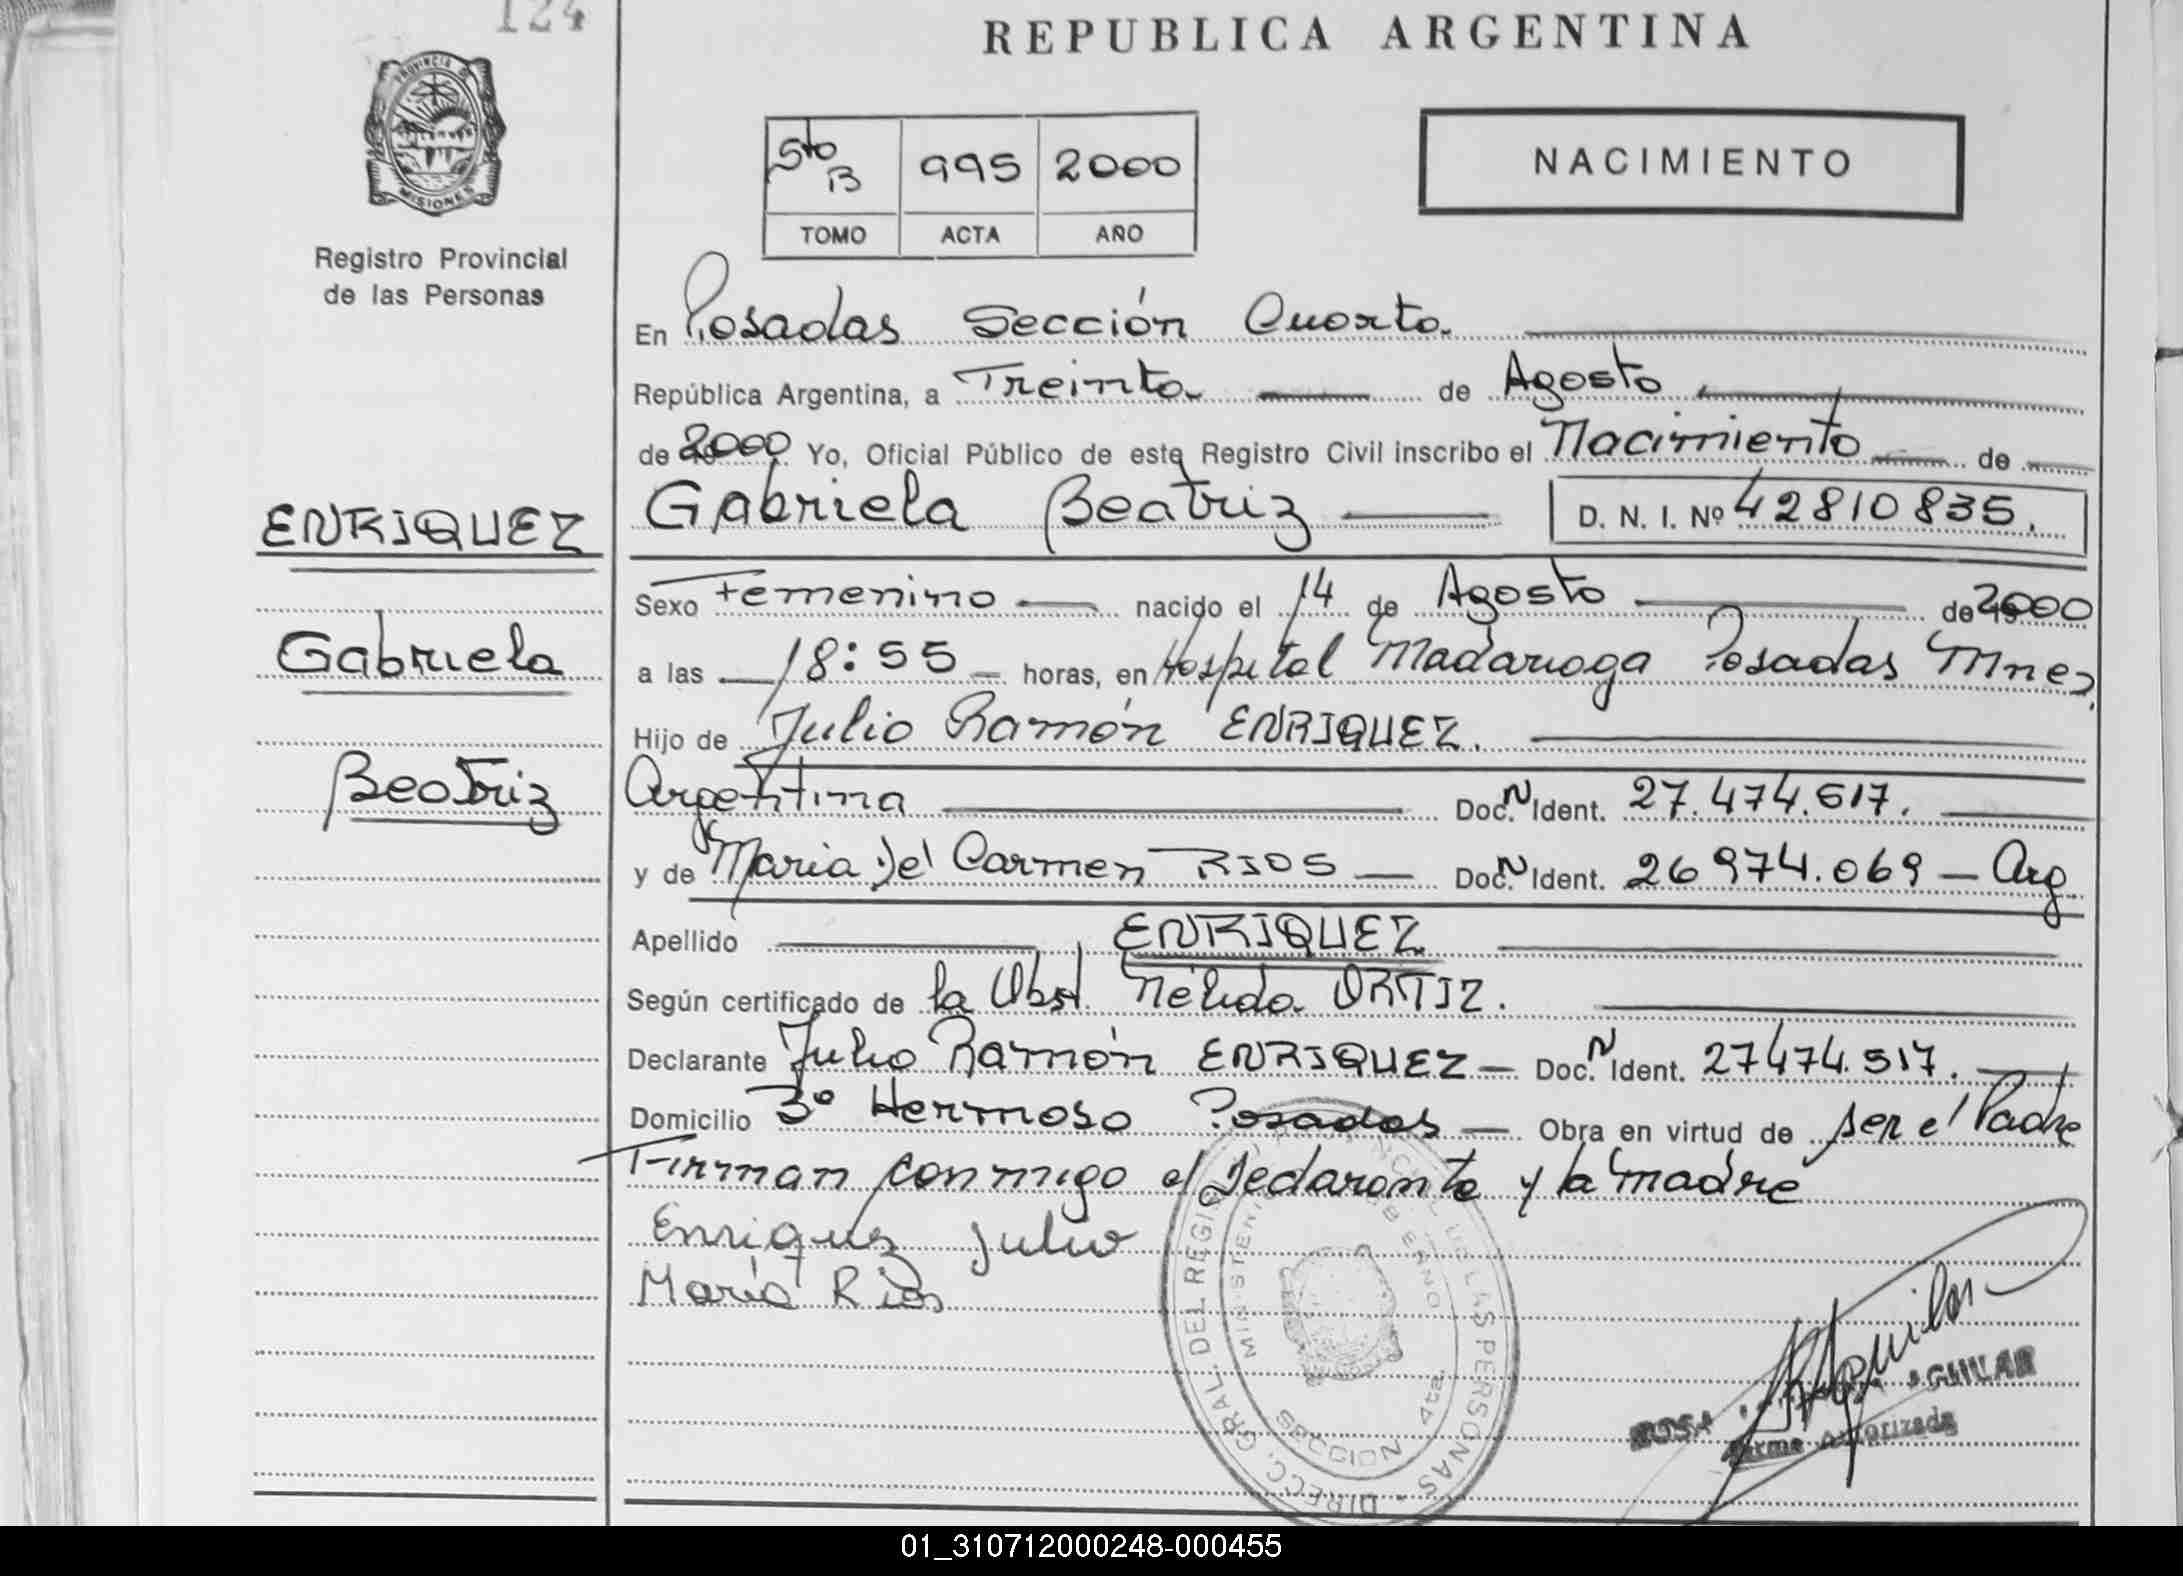 124
REPUBLICA ARGENTINA
PROVINCIA DE
MISIONES
Registro Provincial
de las Personas
5to B 995 2000
TOMO ACTA AÑO
NACIMIENTO
En Posadas Sección Cuarta
República Argentina, a Treinta de Agosto
de 2000 Yo, Oficial Público de este Registro Civil inscribo el Nacimiento de
Gabriela Beatriz D. N. I. Nº 42810835.
ENRIQUEZ
Gabriela
Beatriz
Sexo Femenino nacido el 14 de Agosto de 2000
a las 18:55 horas, en Hospital Madariaga Posadas Mnes.
Hijo de Julio Ramón ENRIQUEZ.
Argentina Doc. N Ident. 27.474.517.
y de Maria del Carmen RIOS Doc. N Ident. 26974.069 - Arg
Apellido ENRIQUEZ
Según certificado de la Obst. Nélida ORTIZ.
Declarante Julio Ramón ENRIQUEZ - Doc. N Ident. 27474.517.
Domicilio Bº Hermoso Posadas - Obra en virtud de ser el Padre
Firman conmigo el Declarante y la madre
Enriquez Julio
María Rios
DIRECC. GRAL. DEL REGISTRO PROVINCIAL DE LAS PERSONAS
SECCION 4ta.
ROSA AGUILAR
Firma Autorizada
01_310712000248-000455